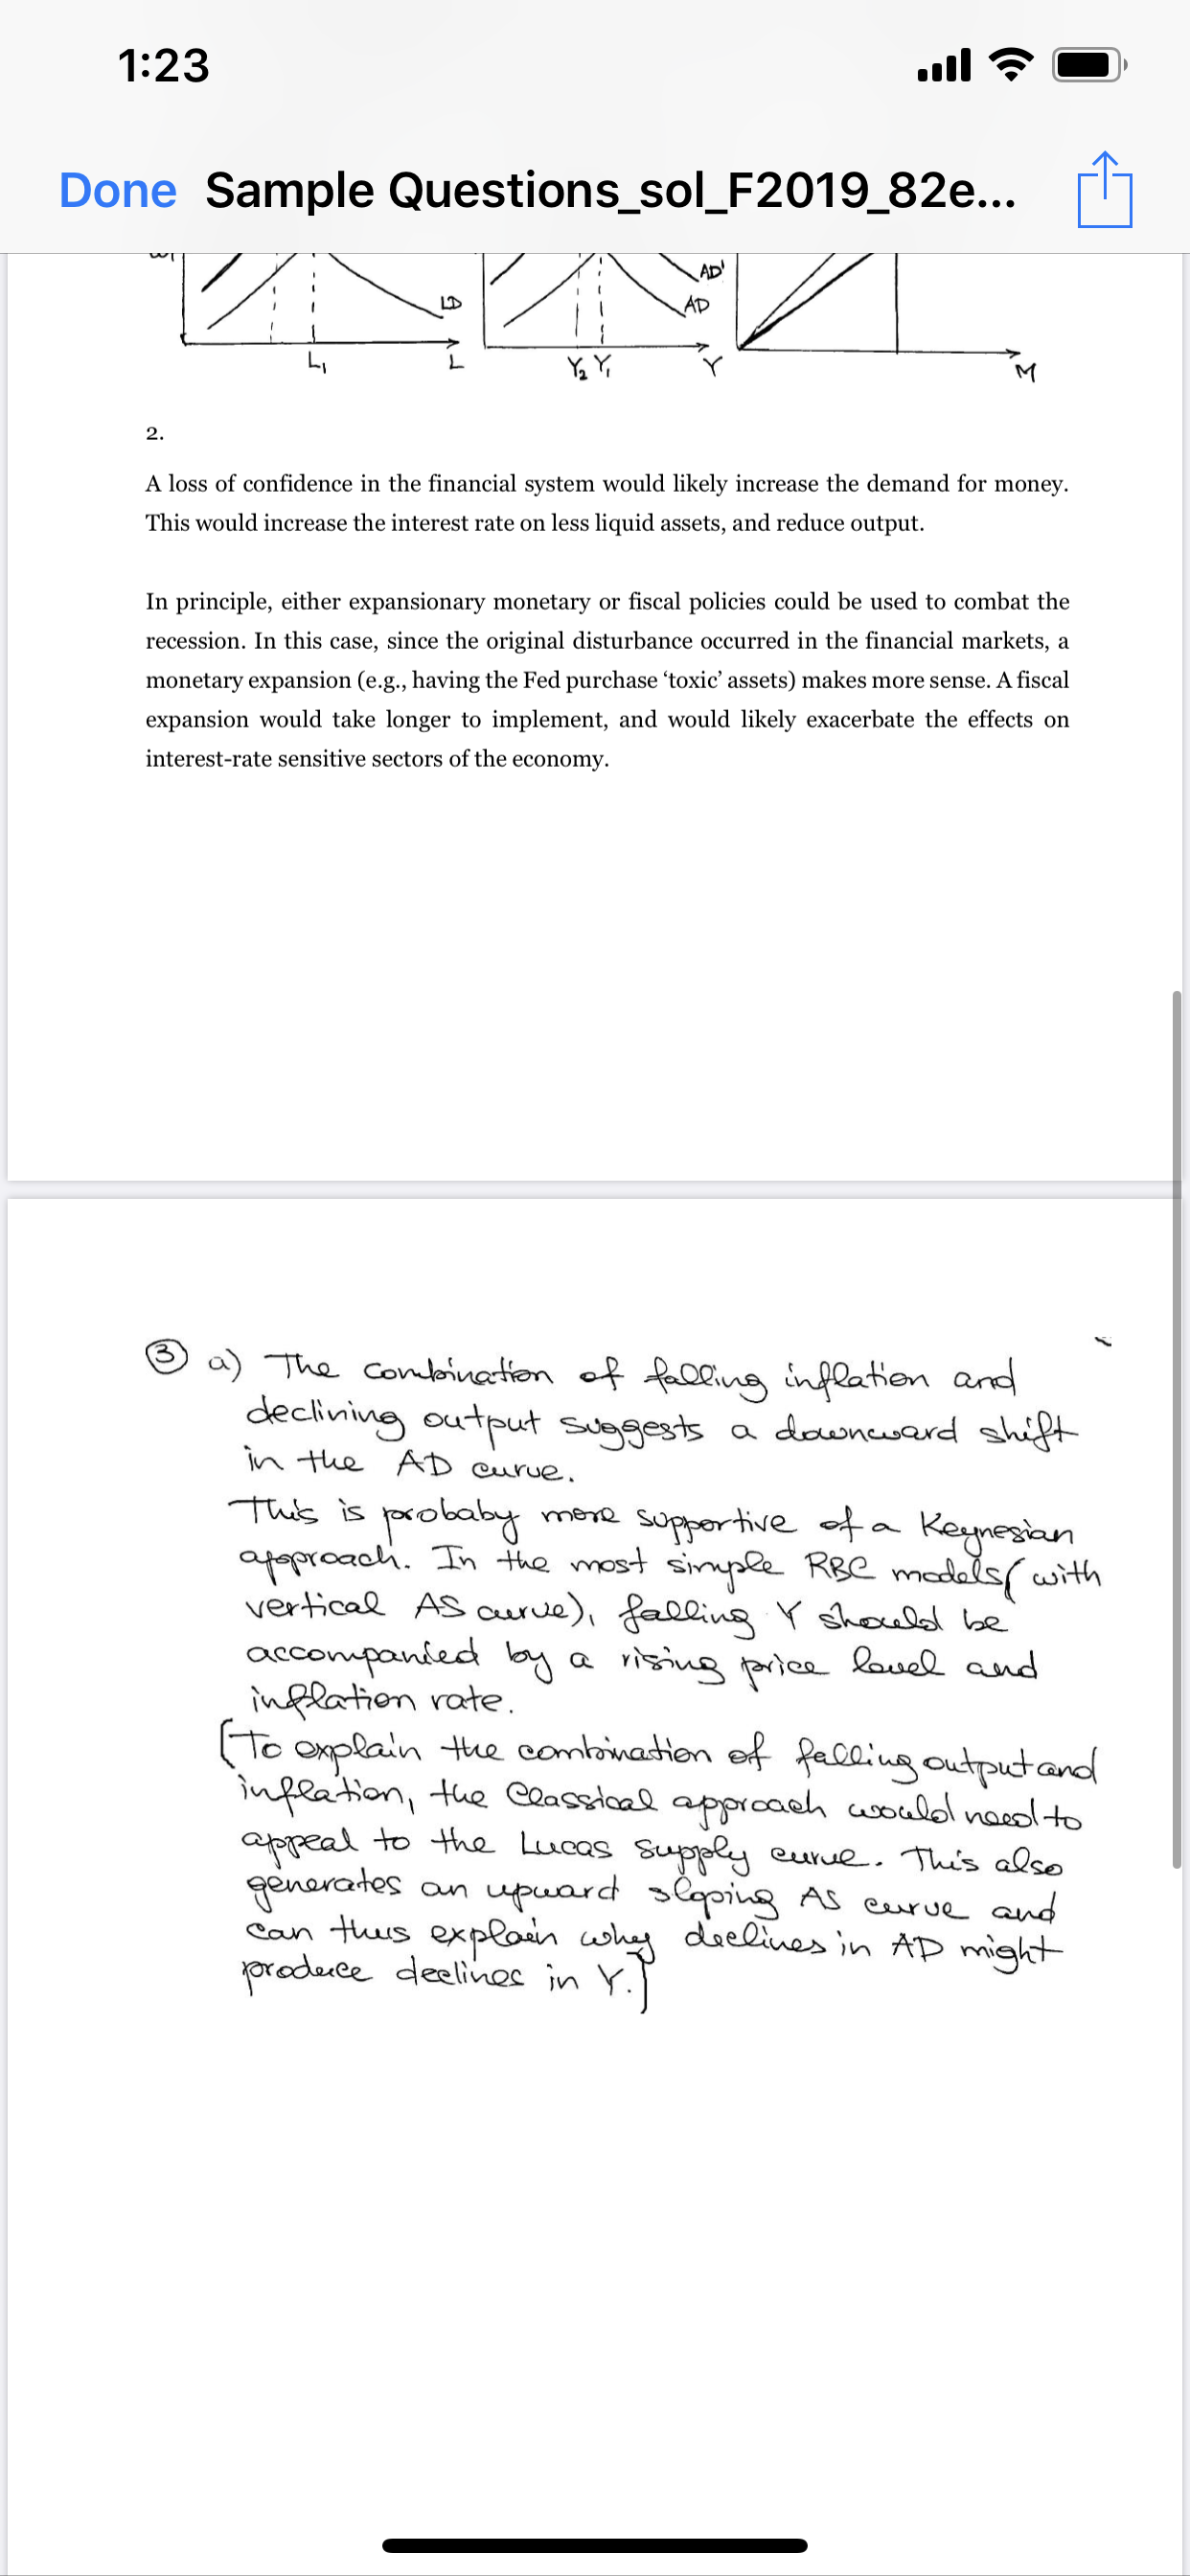 1:23
Done Sample Questions_sol_F2019_82e...
AD'
LD
AD
L₁
L
Y₂ Y₁
Y
M
2.
A loss of confidence in the financial system would likely increase the demand for money.
This would increase the interest rate on less liquid assets, and reduce output.
In principle, either expansionary monetary or fiscal policies could be used to combat the
recession. In this case, since the original disturbance occurred in the financial markets, a
monetary expansion (e.g., having the Fed purchase ‘toxic’ assets) makes more sense. A fiscal
expansion would take longer to implement, and would likely exacerbate the effects on
interest-rate sensitive sectors of the economy.
③ a) The combination of falling inflation and
declining output suggests a downward shift
in the AD curve.
This is probaby more supportive of a Keynesian
approach. In the most simple RBC models (with
vertical AS curve), falling Y should be
accompanied by a rising price level and
inflation rate.
[To explain the combination of falling output and
inflation, the Classical approach would need to
appeal to the Lucas supply curve. This also
generates an upward sloping AS curve and
can thus explain why declines in AD might
produce declines in Y.]